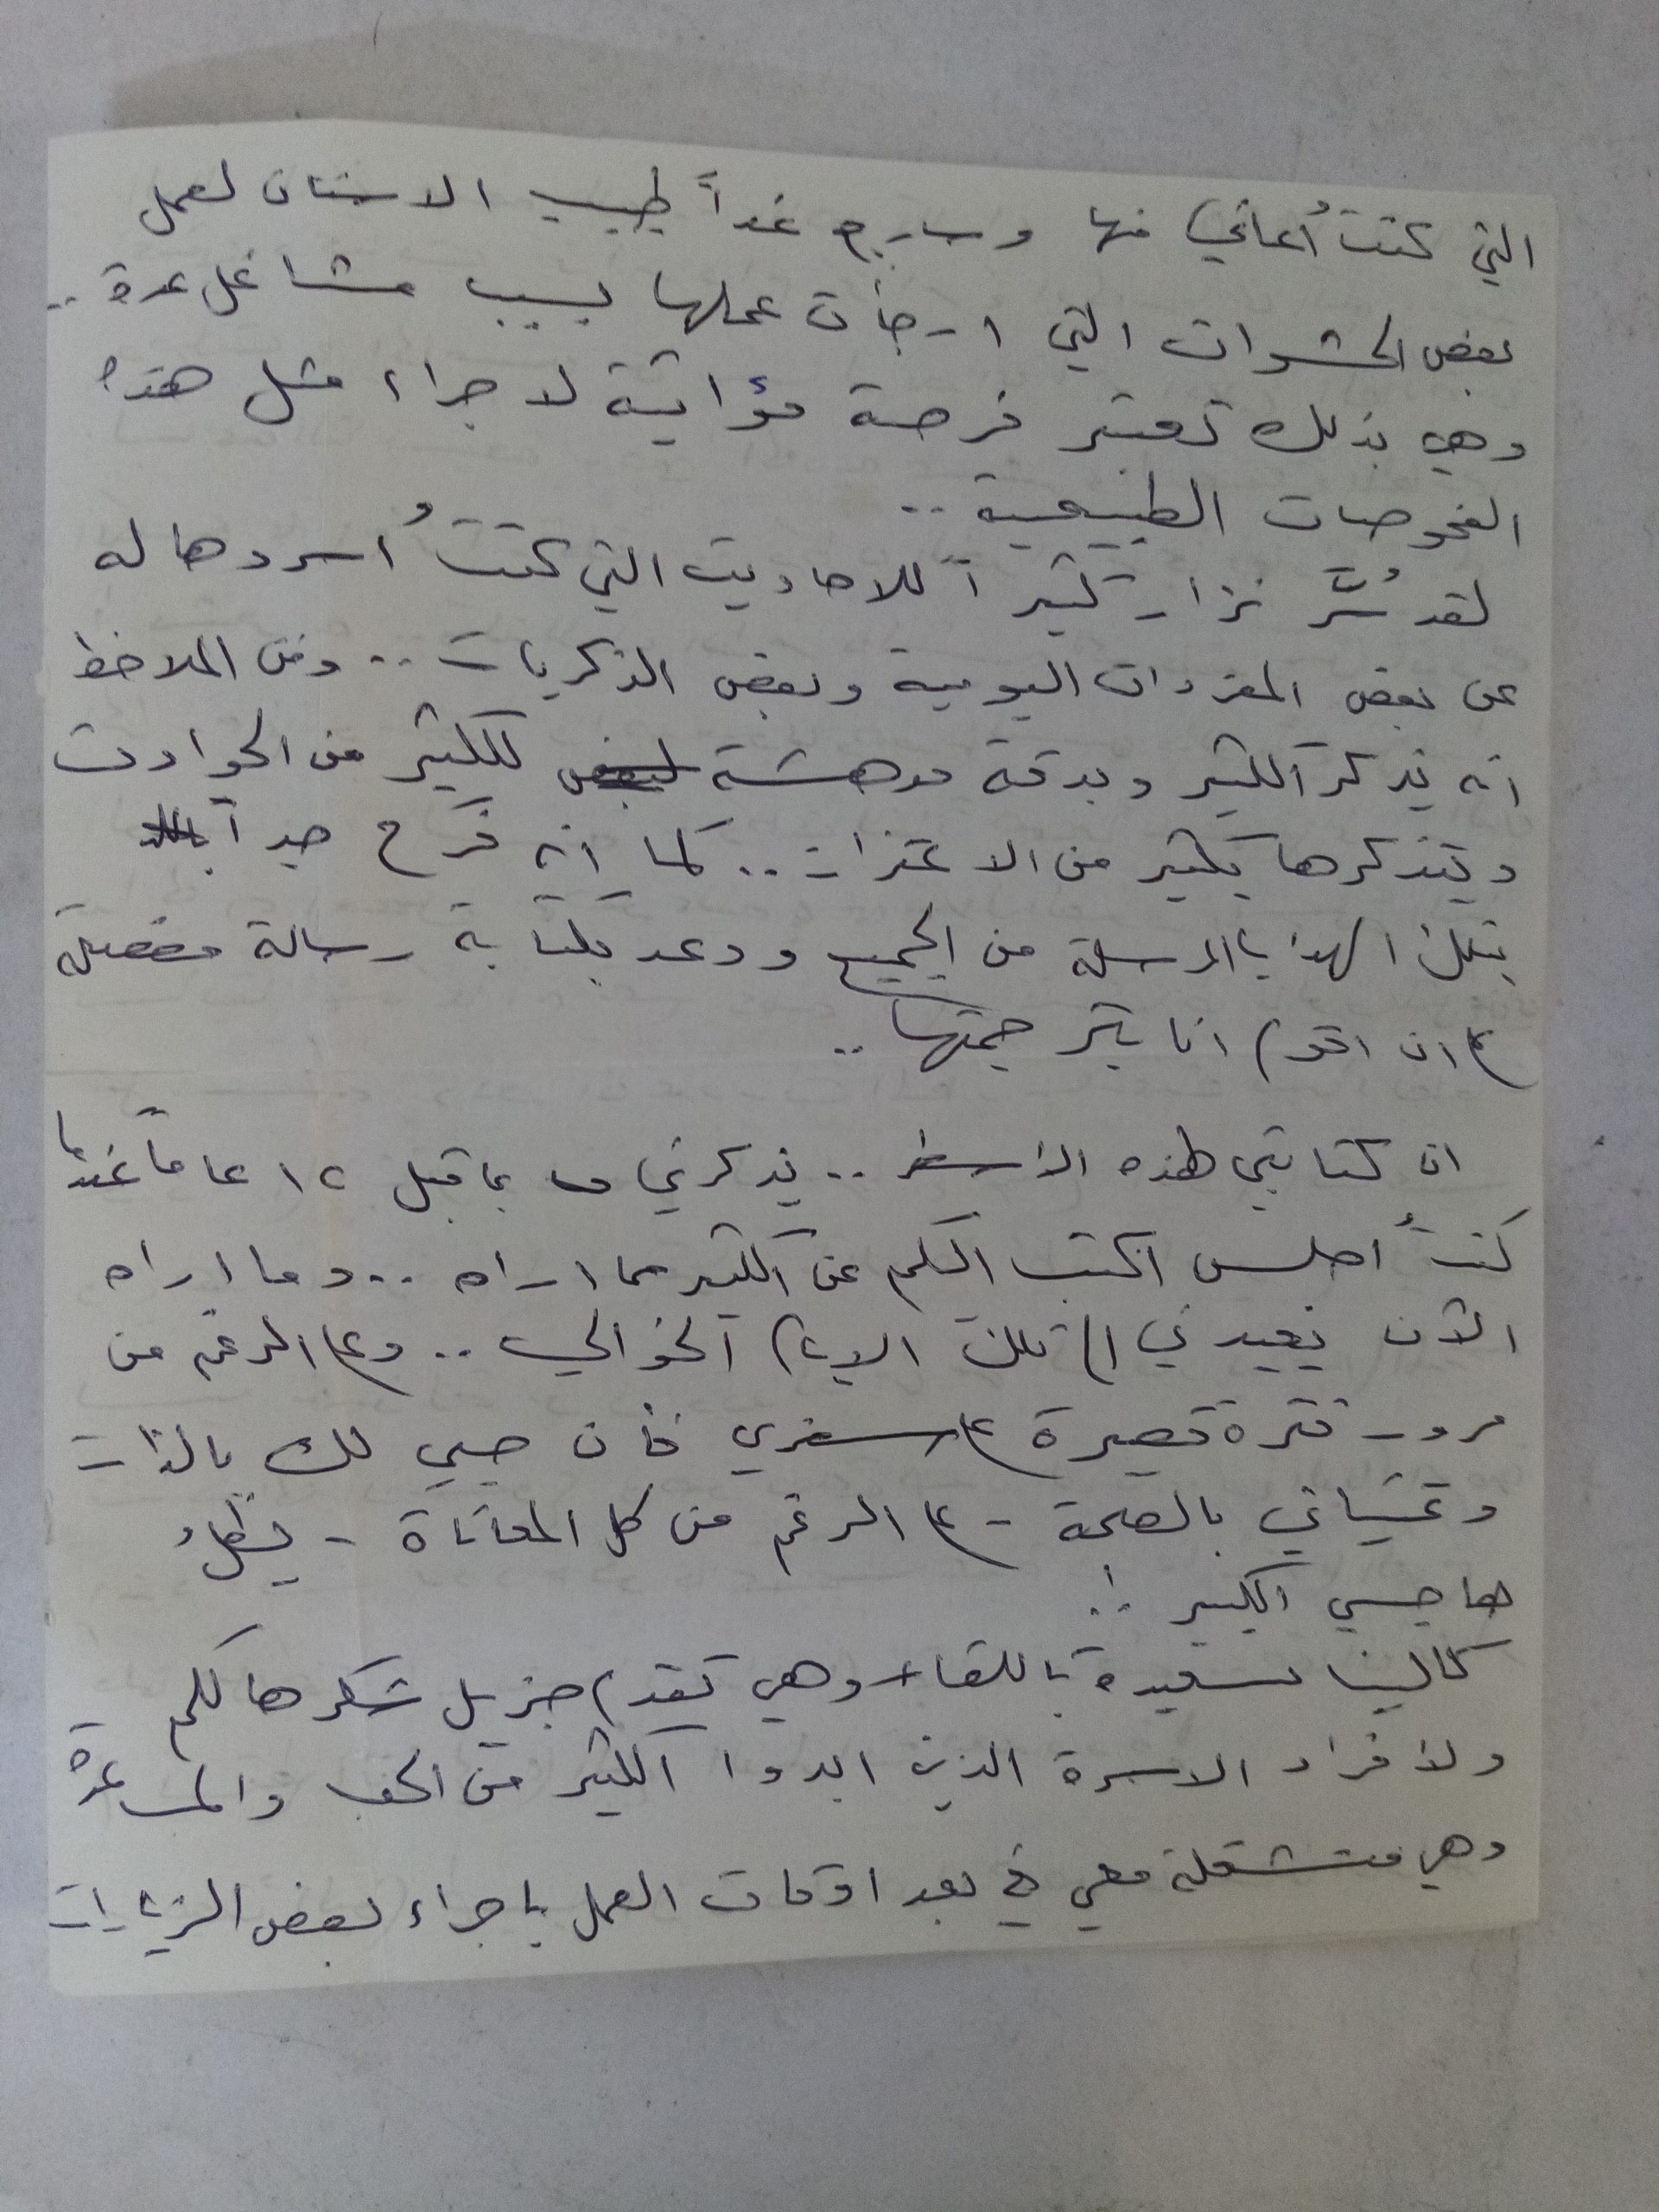 التي كنتُ أعاني منها وسارجع غداً طبيب الاسنان لعمل
بعض الحشوات التي ارجأت عملها بسبب مشاغل عدة ..
وهي بذلك تعتبر فرصة مؤاتية لاجراء مثل هذه
الفحوصات الطبيعية ..
لقد سُرَّ نزار كثيراً للاحاديث التي كنتُ اسردها له
عن بعض المفردات اليومية وبعض الذكريات .. ومن الملاحظ
انه يذكر الكثير وبدقة مدهشة لبعض للكثير من الحوادث
ويتذكرها بكثير من الاعتزاز .. كما انه فرح جداً
بتلك الهدايا المرسلة من الجميع ووعد بكتابة رسالة مفصلة
على ان اقوم انا بترجمتها ..
ان كتابتي لهذه الاسطر .. يذكرني بما قبل ١٢ عاماً عندما
كنتُ اجلس اكتب اليكم عن الكثير مما اراه .. وما اراه
الآن يعيدني الى تلك الايام الخوالي .. وعلى الرغم من
مرور فترة قصيرة على سفري فأن حبي لك بالذات
وتمنياتي بالصحة - على الرغم من كل المعاناة - يظلُ
هاجسي الكبير !..
كالينا سعيدة باللقاء وهي تقدم جزيل شكرها لكم
ولافراد الاسرة الذين ابدوا الكثير من الحب والمساعدة
وهي منشغلة معي في بعد اوقات العمل باجراء بعض الزيارات